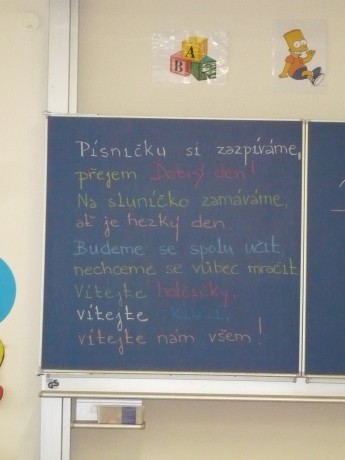 Písničku si zazpíváme,
přejem Dobrý den!
Na sluníčko zamáváme,
ať je hezký den.
Budeme se spolu učit,
nechceme se vůbec mračit.
Vítejte holčičky,
vítejte kluci,
vítejte nám všem!
A B